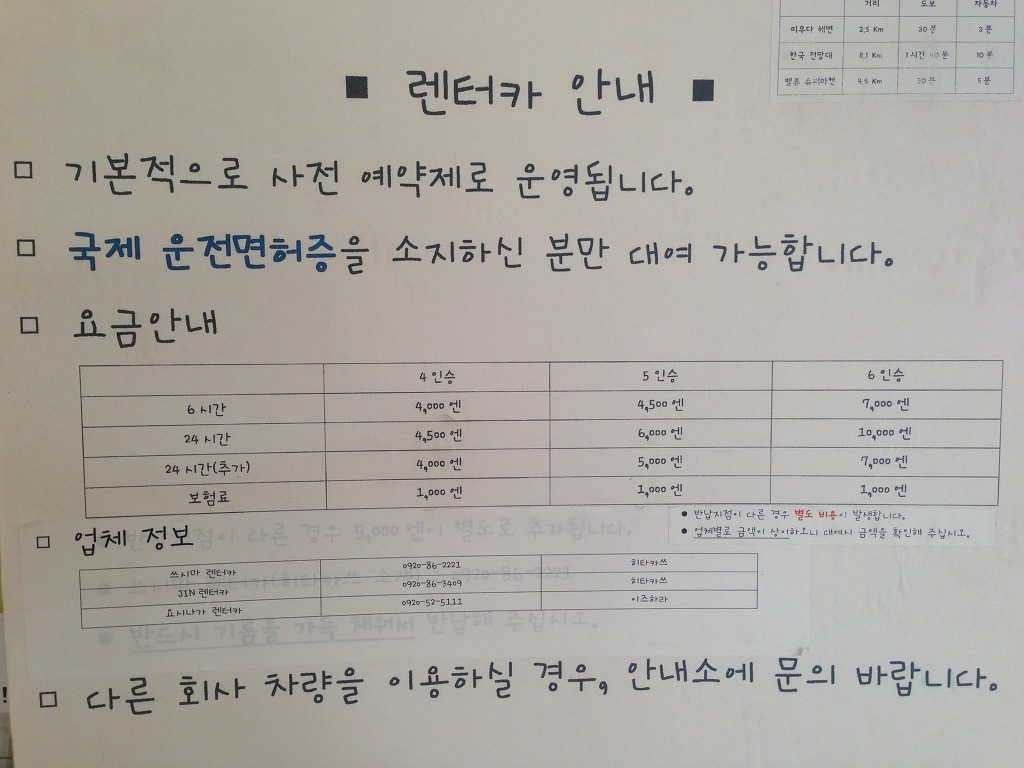 거리 도보 자동차
미우다 해변 2,5 Km 30 분 3 분
한국 전망대 6,1 Km 1시간 40 분 10 분
밸류 슈퍼마켓 4,5 Km 50 분 5 분
■ 렌터카 안내 ■
□ 기본적으로 사전 예약제로 운영됩니다.
□ 국제 운전면허증을 소지하신 분만 대여 가능합니다.
□ 요금안내
4 인승 5 인승 6 인승
6 시간 4,000 엔 4,500 엔 7,000 엔
24 시간 4,500 엔 6,000 엔 10,000 엔
24 시간(추가) 4,000 엔 5,000 엔 7,000 엔
보험료 1,000 엔 1,000 엔 1,000 엔
● 반납지점이 다른 경우 별도 비용이 발생합니다.
● 업체별로 금액이 상이하오니 대여시 금액을 확인해 주십시오.
□ 업체 정보
지점이 다른 경우 5,000 엔이 별도로 추가됩니다.
쓰시마 렌터카 0920-86-2221 히타카쓰
JIN 렌터카 0920-86-3409 히타카쓰
요시나가 렌터카 0920-52-5111 이즈하라
● 반드시 기름을 가득 채워서 반납해 주십시오.
□ 다른 회사 차량을 이용하실 경우, 안내소에 문의 바랍니다.